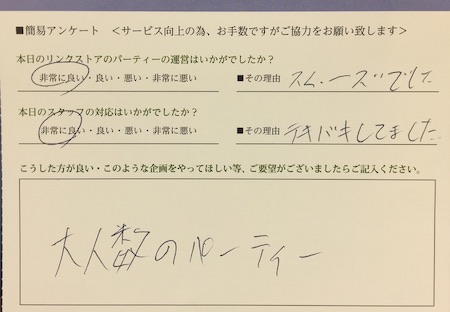 ■簡易アンケート ＜サービス向上の為、お手数ですがご協力をお願い致します＞
本日のリンクストアのパーティーの運営はいかがでしたか？
非常に良い・良い・悪い・非常に悪い ■その理由 スムーズでした
本日のスタッフの対応はいかがでしたか？
非常に良い・良い・悪い・非常に悪い ■その理由 テキパキしてました
こうした方が良い・このような企画をやってほしい等、ご要望がございましたらご記入ください。
大人数のパーティー